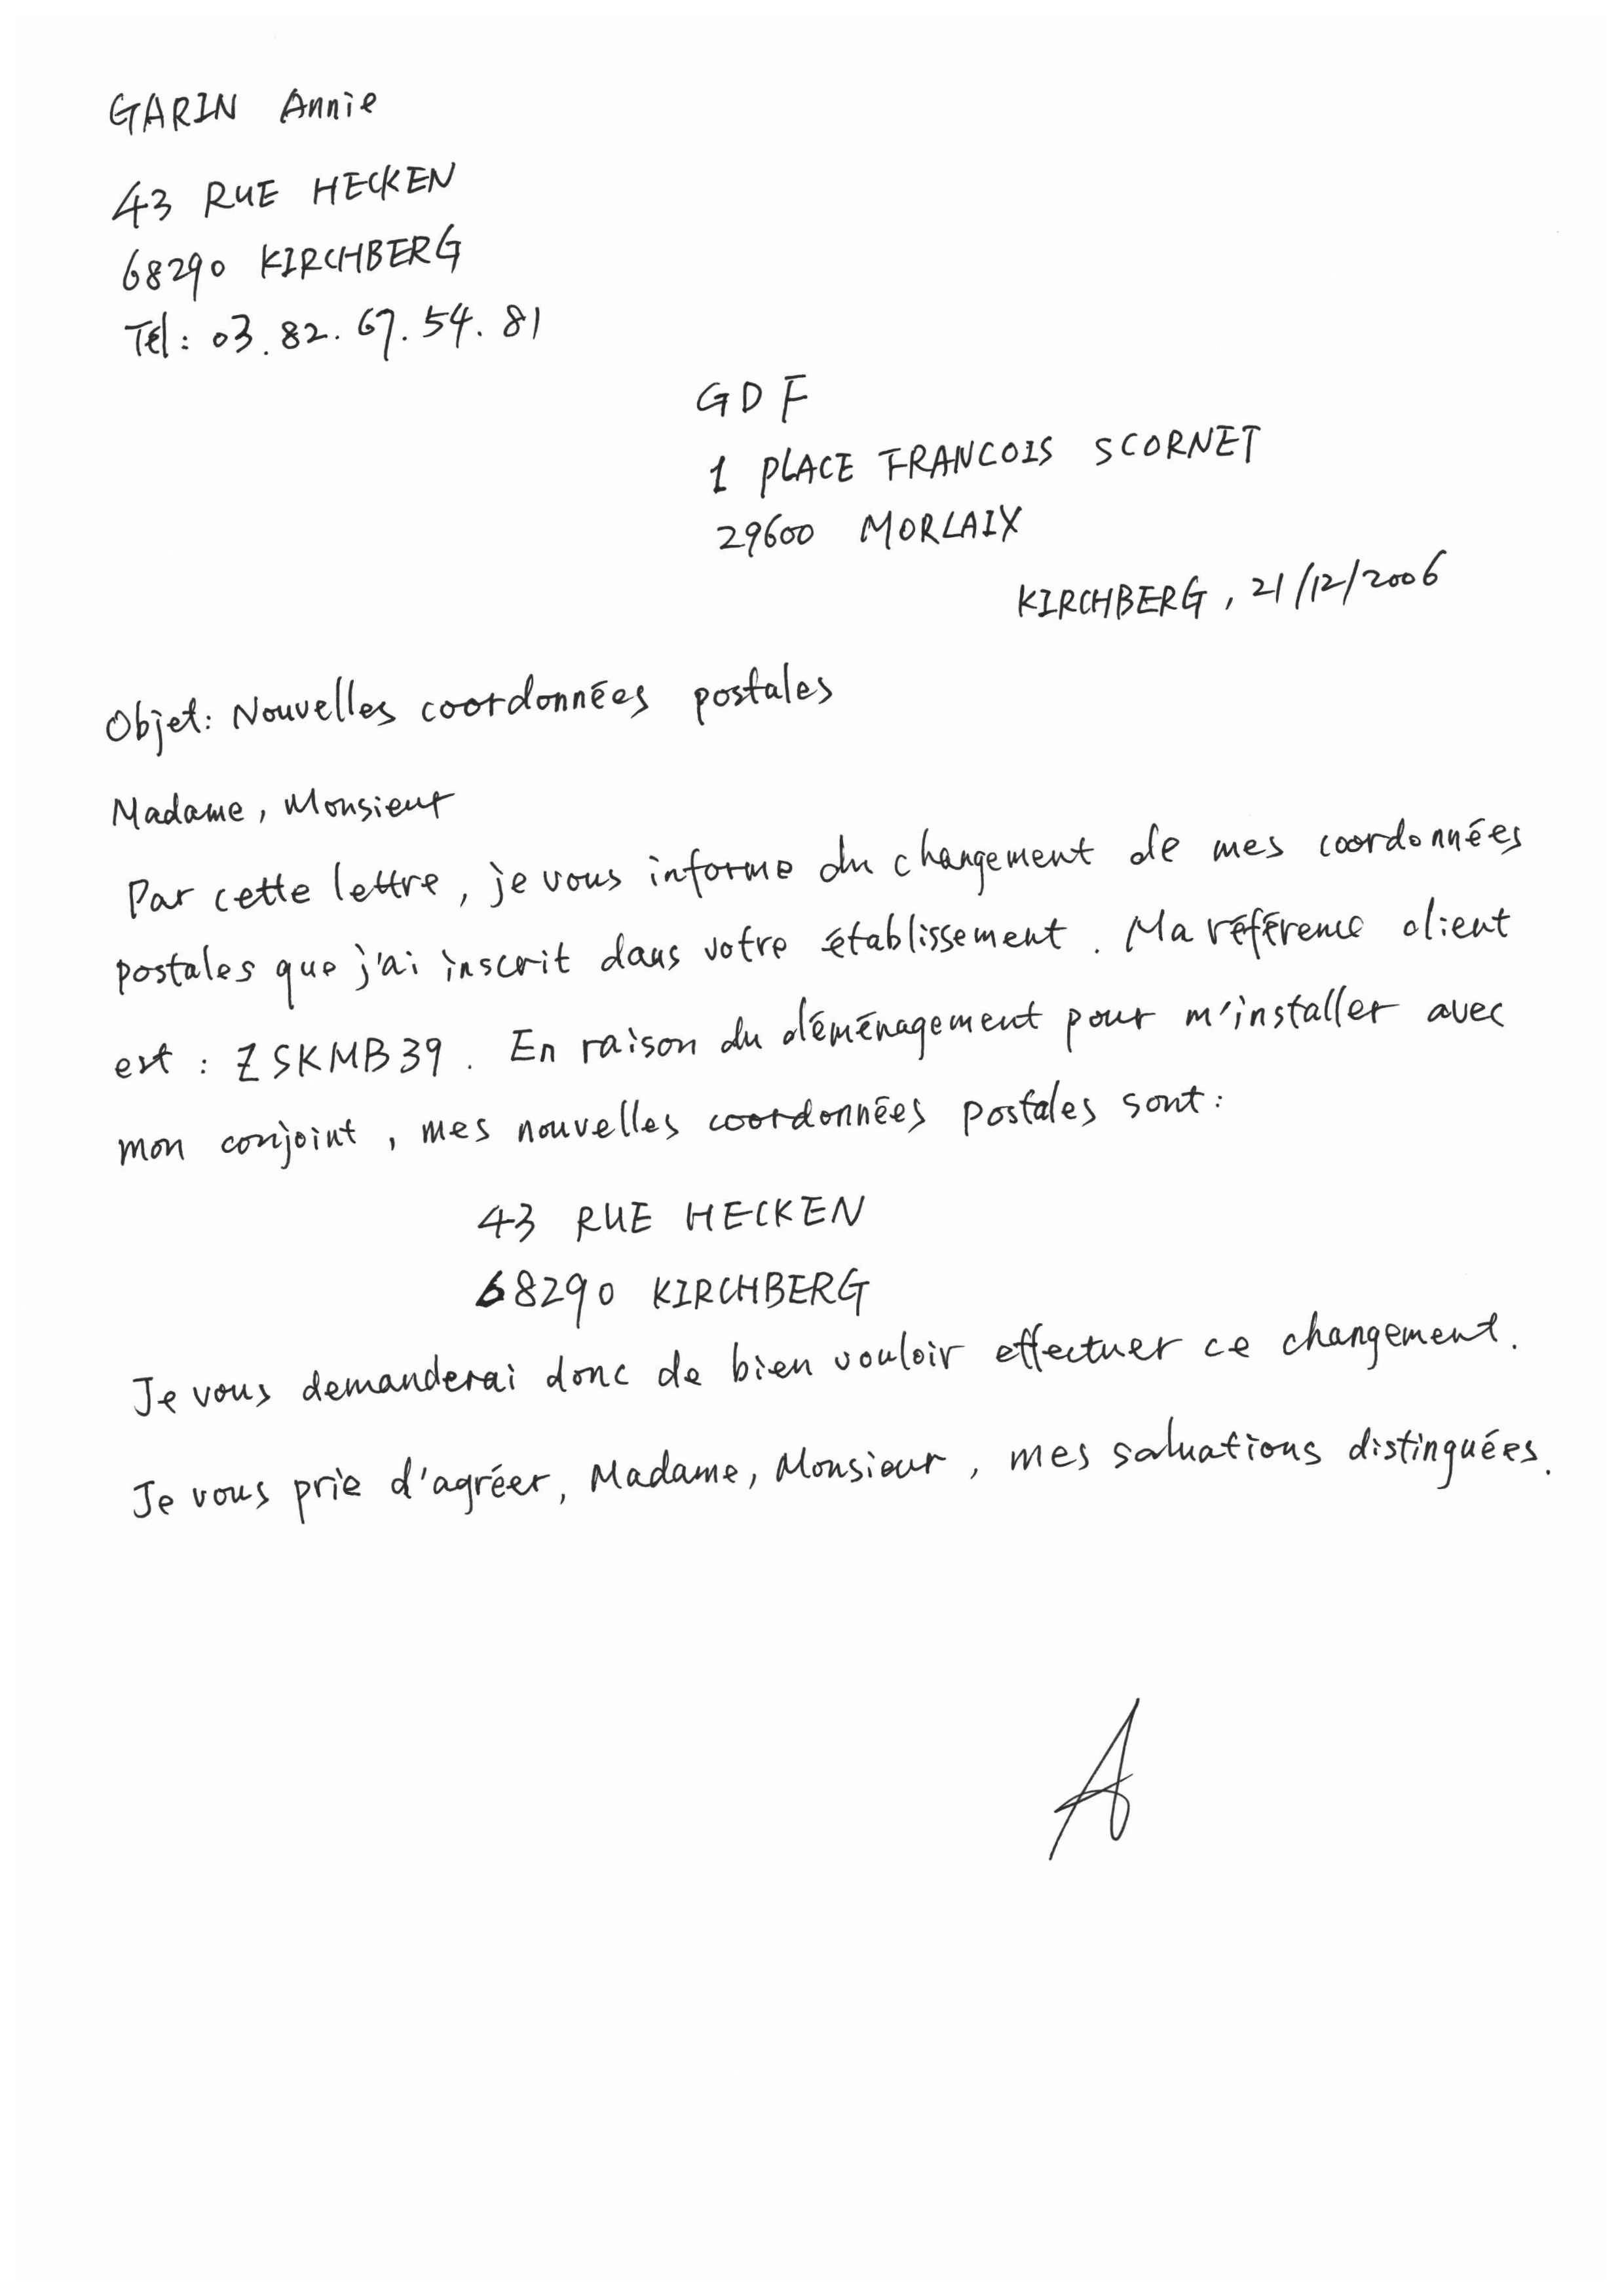 GARIN Annie
43 RUE HECKEN
68290 KIRCHBERG
Tél : 03.82.67.54.81
GDF
1 PLACE FRANCOIS SCORNET
29600 MORLAIX
KIRCHBERG, 21/12/2006
Objet: Nouvelles coordonnées postales
Madame, Monsieur
Par cette lettre, je vous informe du changement de mes coordonnées
postales que j'ai inscrit dans votre établissement. Ma référence client
est : ZSKMB39. En raison du déménagement pour m'installer avec
mon conjoint, mes nouvelles coordonnées postales sont:
43 RUE HECKEN
68290 KIRCHBERG
Je vous demanderai donc de bien vouloir effectuer ce changement.
Je vous prie d'agréer, Madame, Monsieur, mes saluations distinguées.
A